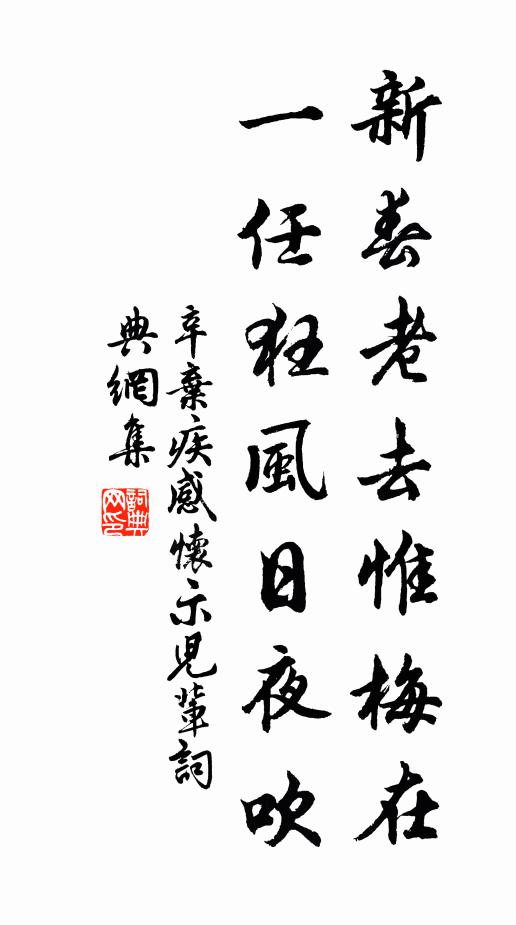 新春老去惟梅在
一任狂風日夜吹
辛棄疾感懷示兒輩詞
典網集
詞典
网印